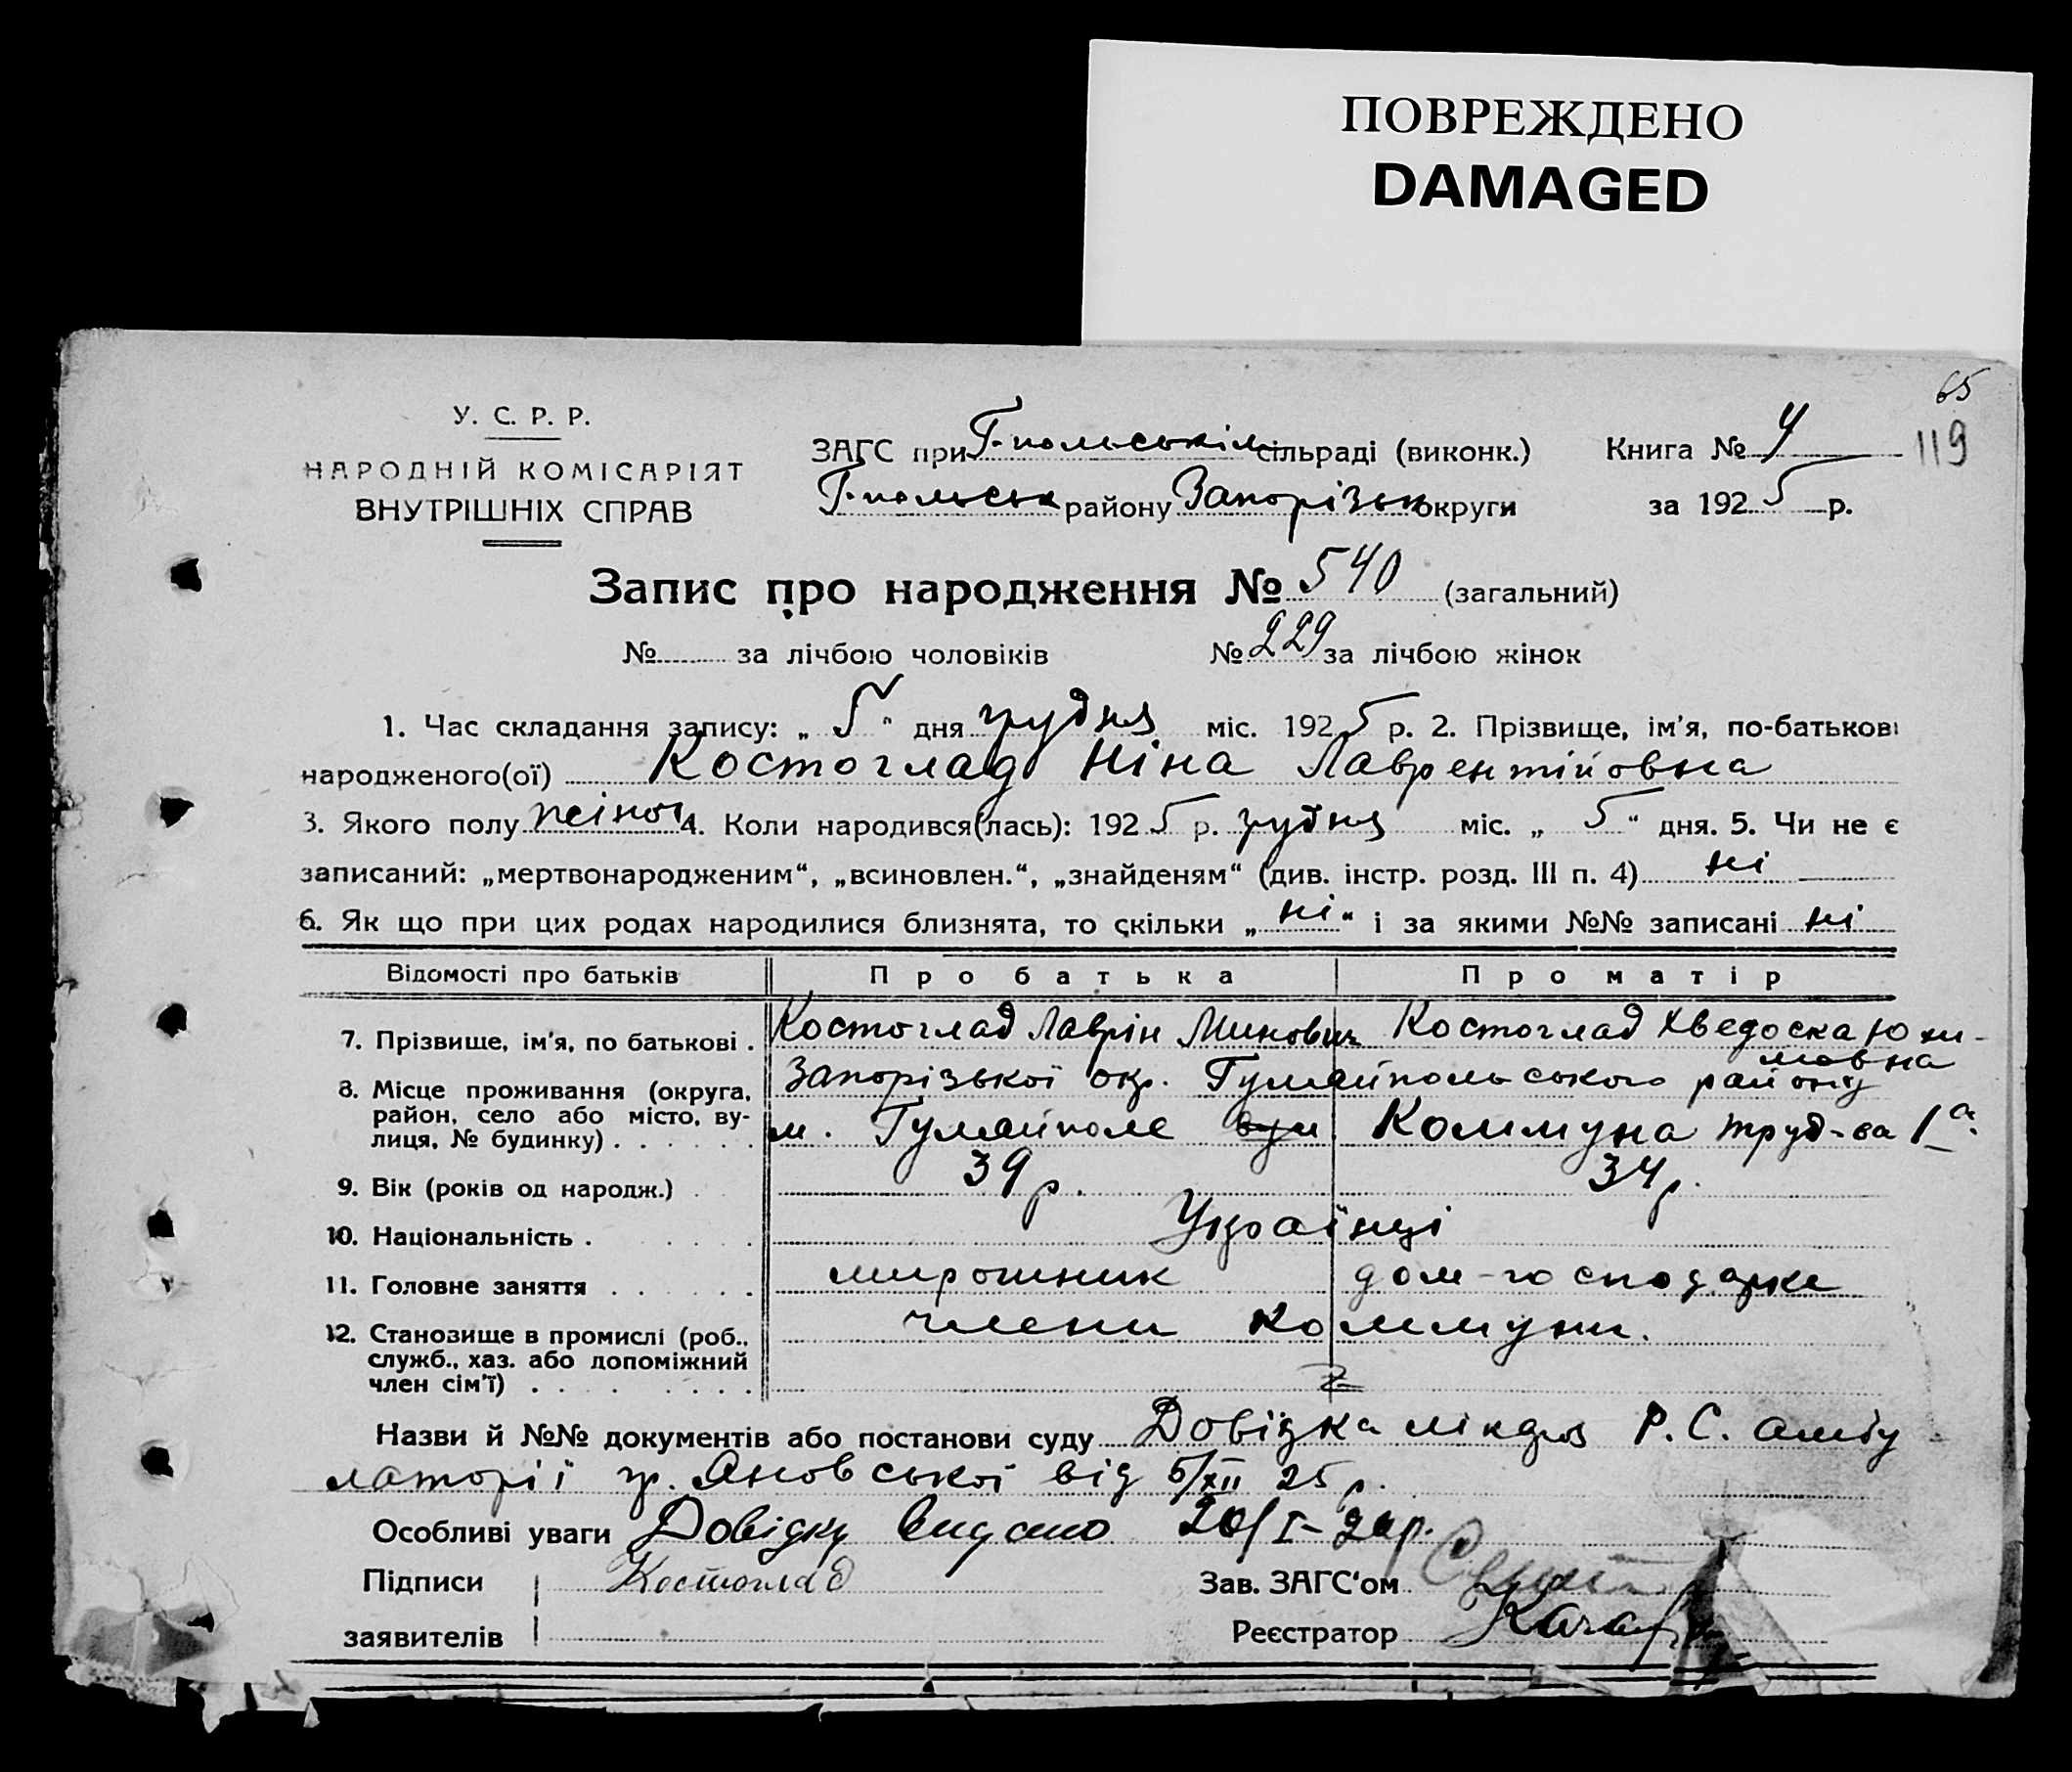 ПОВРЕЖДЕНО
DAMAGED
65
119
У. С. Р. Р.
НАРОДНІЙ КОМІСАРІЯТ
ВНУТРІШНІХ СПРАВ
ЗАГС при Г-польській сільраді (виконк.)
Г-польськ району Запорізьк округи
Книга № 4
за 1925 р.
Запис про народження № 540 (загальний)
№ за лічбою чоловіків № 229 за лічбою жінок
1. Час складання запису: „ 5 " дня грудня міс. 1925 р. 2. Прізвище, ім'я, по-батькові
народженого(ої) Костоглад Ніна Лаврентійовна
3. Якого полу жіноч 4. Коли народився(лась): 1925 р. грудня міс. „ 5 " дня. 5. Чи не є
записаний: „мертвонародженим", „всиновлен.", „знайденям" (див. інстр. розд. III п. 4) ні
6. Як що при цих родах народилися близнята, то скільки „ ні " і за якими №№ записані ні
Відомості про батьків Про батька Про матір
7. Прізвище, ім'я, по батькові . Костоглад Лаврін Минович Костоглад Хведоска Юхи-
мовна
8. Місце проживання (округа, Запорізької окр. Гуляйпольського району
район, село або місто, ву-
лиця, № будинку) . . . . . . м. Гуляйполе вул Коммуна труд-ва 1а.
9. Вік (років од народж.) . 39 р. 34 р.
10. Національність . Українці
11. Головне заняття . . . . . . мирошник дом-господарка
12. Становище в промислі (роб., члени коммуни.
служб., хаз. або допоміжний
член сім'ї) . . . . . . . .
Назви й №№ документів або постанови суду Довідка Р. С. амбу
латорії гр. Яновської від 5/XII 25 р.
Особливі уваги Довідку видано 20/I-
Підписи Костоглад Зав. ЗАГС'ом
заявителів Реєстратор